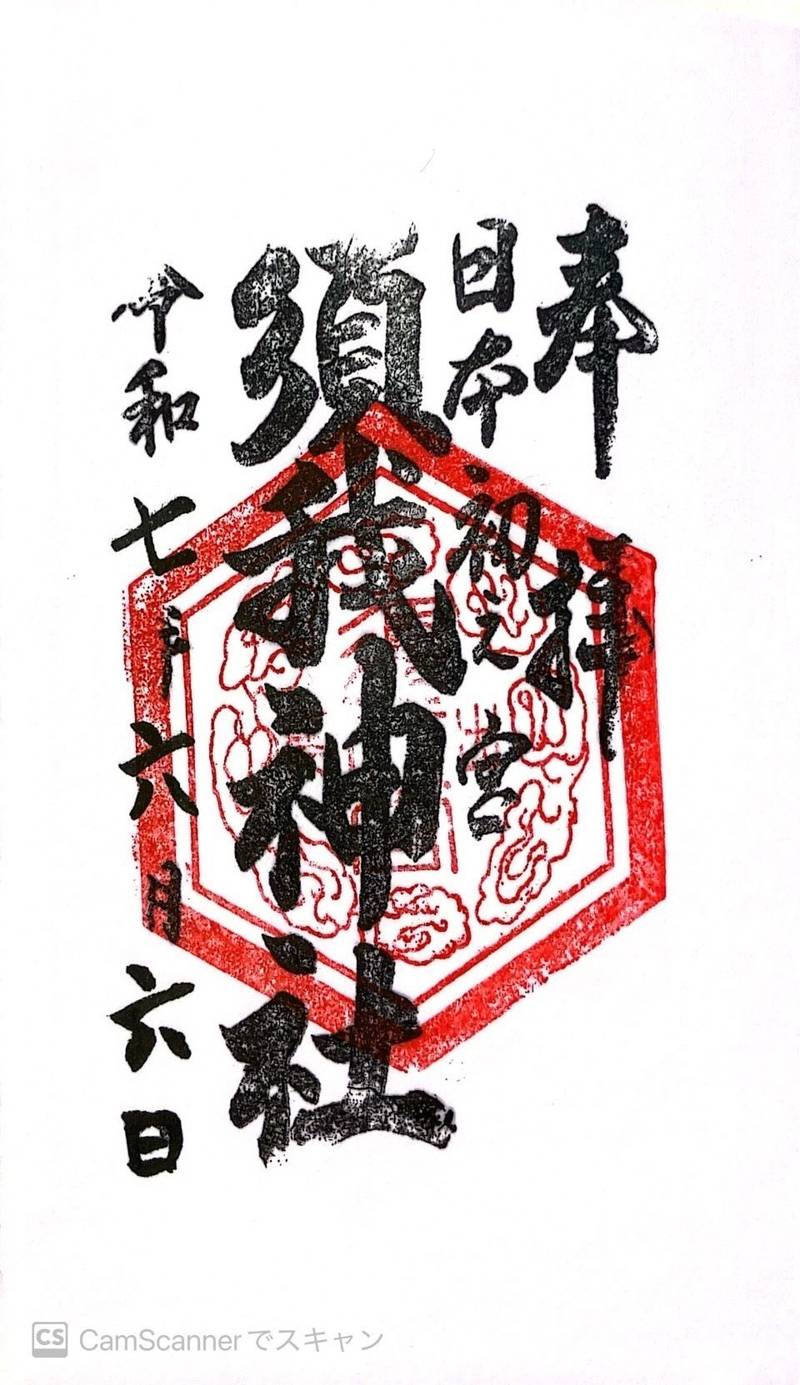 奉拝
日本初之宮
須我神社
令和七年六月六日
CS CamScannerでスキャン